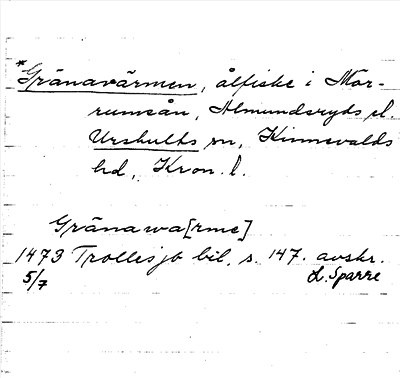 *Gränavärmen, ålfiske i Mör-
rumsån, Almundsryds el.
Urshults sn, Kinnevalds
hd, Kron. l.
Gränawa[rme]
1473 Trollesjö bil. s. 147. avskr.
5/7 L. Sparre